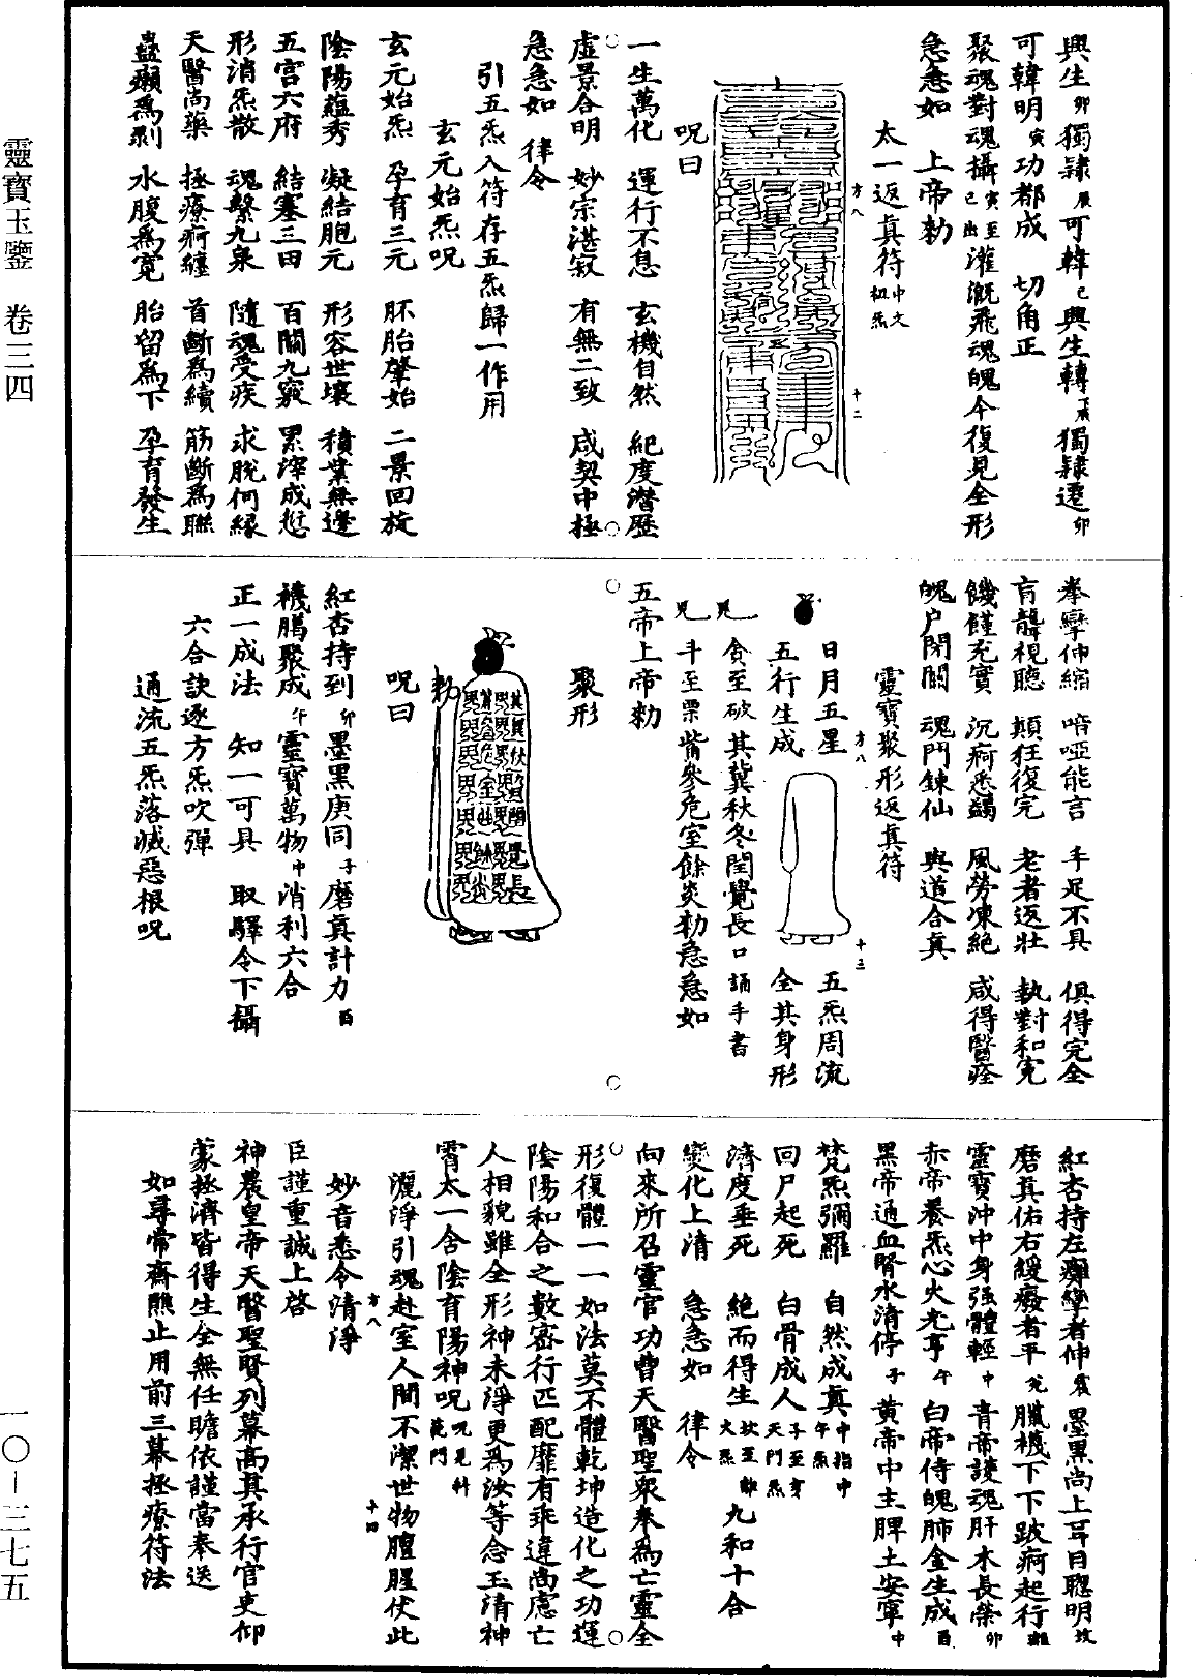 興生卯獨隷辰可韓巳興生轉丁亥獨隷遷卯
可韓明寅功都成　切角正
聚魂對魂攝寅至巳出灌溉飛魂魄今復見全形
急急如　上帝勑
太一返真符中文祖炁
方八
十二
呪曰
一生萬化　運行不息　玄機自然　紀度潛歷
虛景合明　妙宗湛寂　有無二致　咸契中極
急急如　律令
引五炁入符存五炁歸一作用
玄元始炁呪
玄元始炁　孕育三元　胚胎肇始　二景回旋
陰陽蘊秀　凝結胞元　形容世壞　積業無邊
五宫六府　結塞三田　百關九竅　累滓成愆
形消炁散　魂繫九泉　隨魂受疾　求脫何緣
天醫尚藥　拯療痾纏　首斷為續　筋斷為聯
蠱癩為剝　水腹為寬　胎留為下　孕育發生
拳攣伸縮　喑啞能言　手足不具　俱得完全
盲聾視聽　顛狂復完　老者返壯　執對和寃
饑饉充實　沉痾悉蠲　風勞凍絕　咸得醫痊
魄户閉關　魂門鍊仙　與道合真
靈寶聚形返真符
方八
十三
日月五星　五炁周流
五行生成　全其身形
貪至破其冀秋冬閏覺長口誦手書
斗至票觜參危室餘炎勑急急如
五帝上帝勑
聚形
勑
呪曰
紅杏持到卯墨黑庚同子磨真計力酉
襪腸聚成午靈寶萬物中消利六合
正一成法　知一可具　取驛令下攝
六合訣逐方炁吹彈
通流五炁落滅惡根呪
紅杏持左癱攣者伸震墨黑尚上耳目聰明坎
磨其佑右緩癈者平兌臘襪下下跛痾起行離
靈寶沖中身强體輕中青帝護魂肝木長榮卯
赤帝養炁心火光亨午白帝侍魄肺金生成酉
黑帝通血腎水清停子黃帝中主脾土安寧中
梵炁彌羅　自然成真中指中午炁
回尸起死　白骨成人子至亥天門炁
濟度垂死　絕而得生坎至離大炁九和十合
變化上清　急急如　律令
向來所召靈官功曹天醫聖衆奉為亡靈全
形復體一一如法莫不體乾坤造化之功運
陰陽和合之數密行匹配靡有乖違尚慮亡
人相貌雖全形神未淨更為汝等念玉清神
霄太一含陰育陽神呪呪見科范門
灑淨引魂赴室人間不潔世物膻腥仗此
方八
十四
妙音悉令清淨
臣謹重誠上啓
神農皇帝天醫聖賢列幕高真承行官吏仰
蒙拯濟皆得生全無任瞻依謹當奉送
如尋常齋醮止用前三幕拯療符法
靈寶玉鑒　卷三四
一〇－三七五